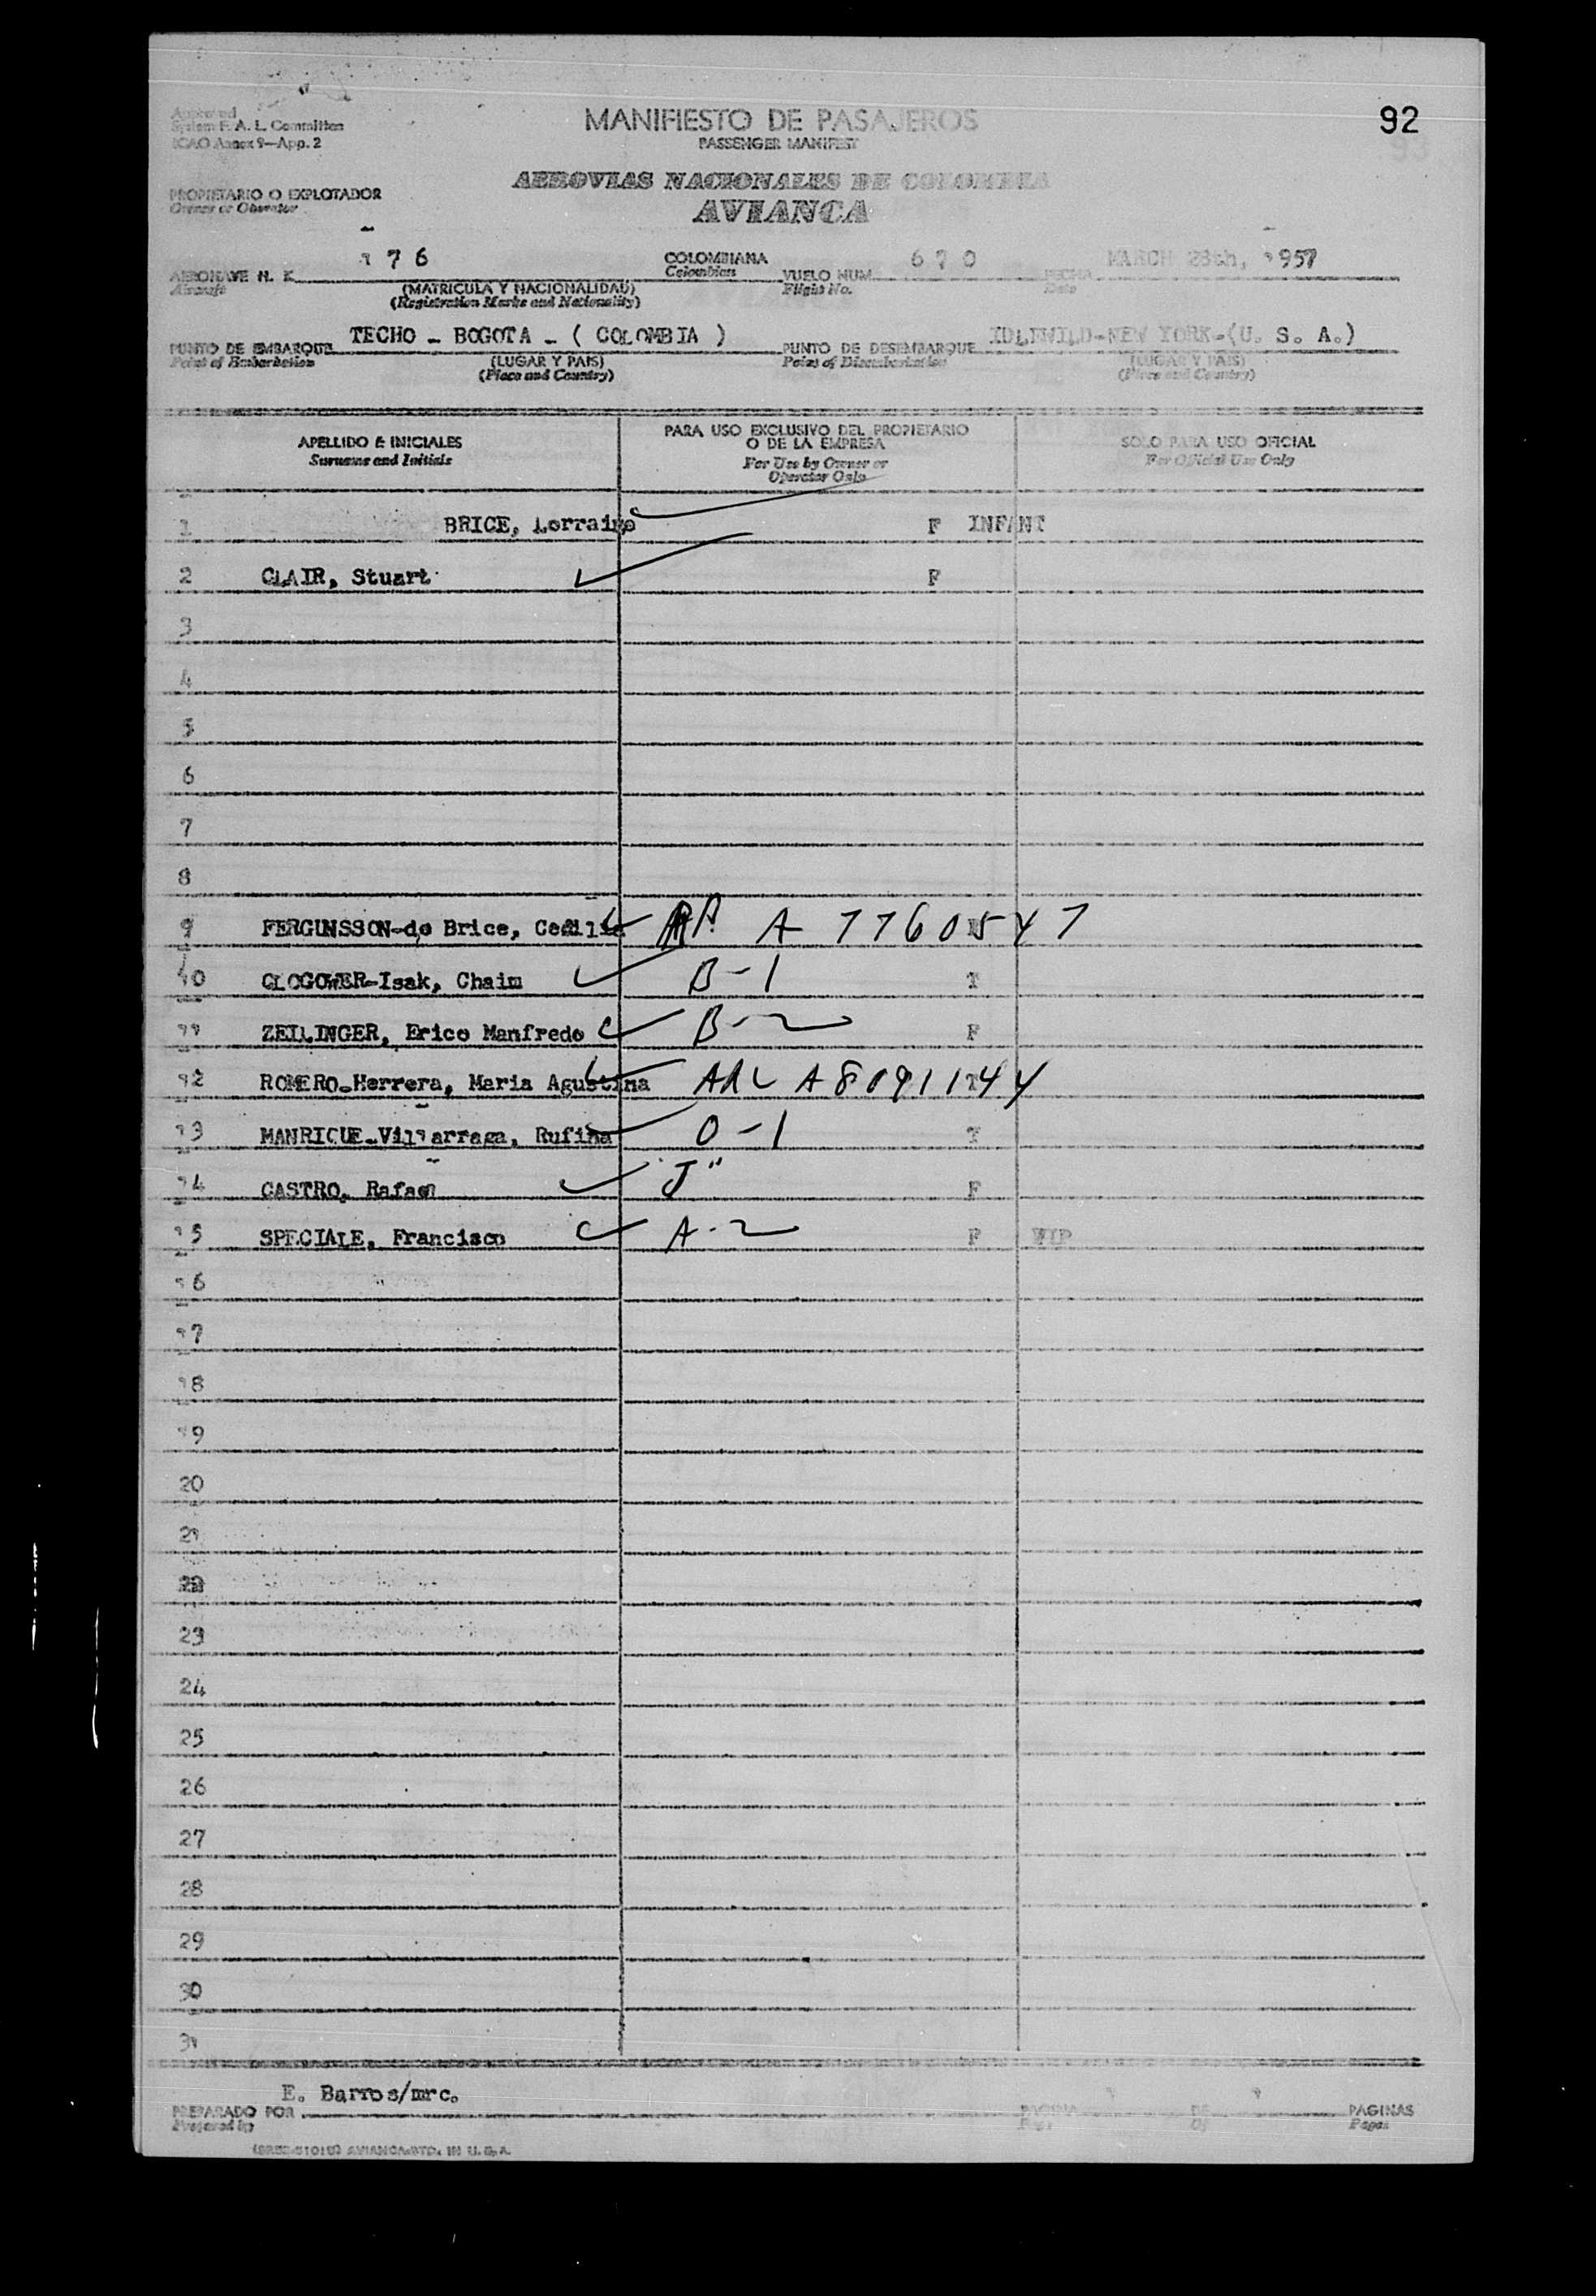 Approved
System F. A. L. Committee
ICAO Annex 9—App. 2
MANIFIESTO DE PASAJEROS
PASSENGER MANIFEST
92
93
PROPIETARIO O EXPLOTADOR
Owner or Operator
AEROVIAS NACIONALES DE COLOMBIA
AVIANCA
AERONAVE H. K. 176 COLOMBIANA VUELO NUM. 670 FECHA MARCH 28th, 1957
Aircraft (MATRICULA Y NACIONALIDAD) Colombian Flight No. Date
(Registration Marks and Nationality)
PUNTO DE EMBARQUE TECHO - BOGOTA - ( COLOMBIA ) PUNTO DE DESEMBARQUE IDLEWILD-NEW YORK-(U. S. A.)
Point of Embarkation (LUGAR Y PAIS) Point of Disembarkation (LUGAR Y PAIS)
(Place and Country) (Place and Country)
APELLIDO E INICIALES PARA USO EXCLUSIVO DEL PROPIETARIO SOLO PARA USO OFICIAL
O DE LA EMPRESA
Surname and Initials For Use by Owner or For Official Use Only
Operator Only
1 BRICE, Lorraine F INFANT
2 CLAIR, Stuart F
3
4
5
6
7
8
9 FERGUNSSON-de Brice, Cecilia A 7760547
10 GLOGOWER-Isak, Chaim B-1 T
11 ZEILINGER, Erico Manfredo B-2 F
12 ROMERO-Herrera, Maria Agustina ARC A8091144 T
13 MANRIQUE-Villarraga, Rufina O-1 T
14 CASTRO, Rafael "J" F
15 SPECIALE, Francisco A-2 F VIP
16
17
18
19
20
21
22
23
24
25
26
27
28
29
30
31
E. Barros/mrc.
PREPARADO POR PAGINA 1 DE 1 PAGINAS
Prepared by Page Of Pages
AVIANCA-PTD. IN U. S. A.